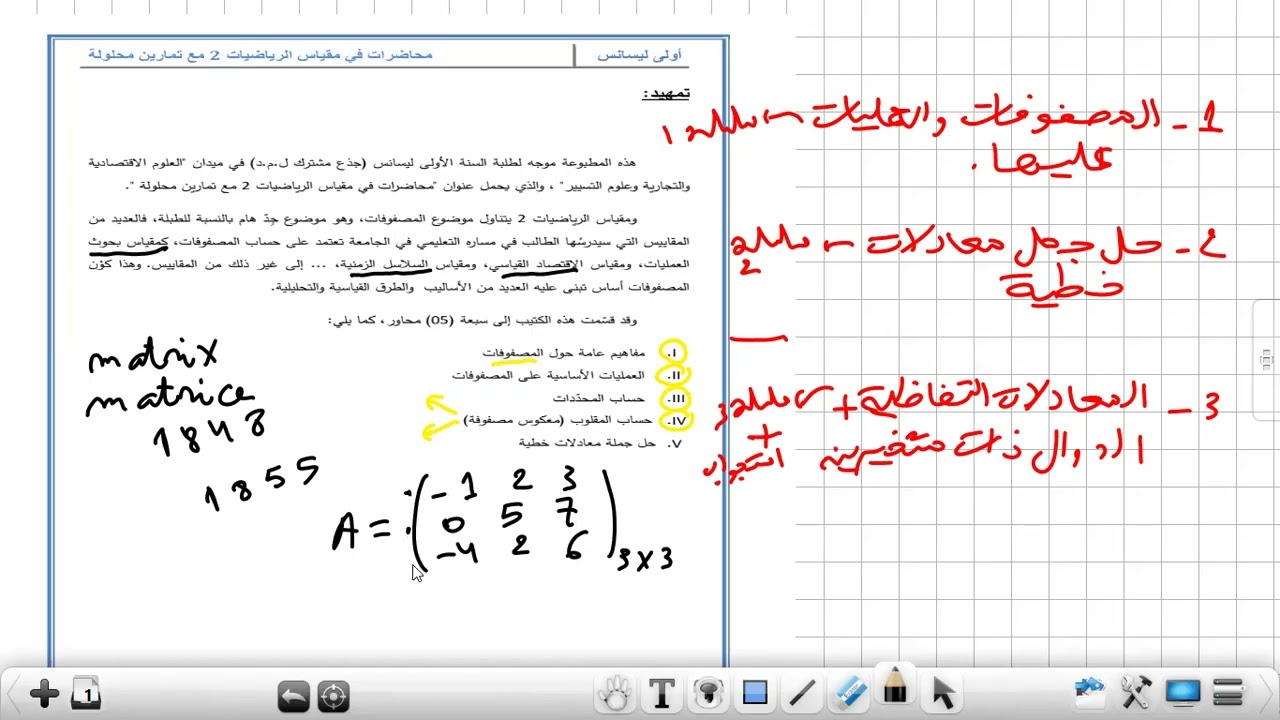 أولى ليسانس
محاضرات في مقياس الرياضيات 2 مع تمارين محلولة
تمهيد:
هذه المطبوعة موجه لطلبة السنة الأولى ليسانس (جذع مشترك ل.م.د) في ميدان "العلوم الاقتصادية
والتجارية وعلوم التسيير" ، والذي يحمل عنوان "محاضرات في مقياس الرياضيات 2 مع تمارين محلولة ".
ومقياس الرياضيات 2 يتناول موضوع المصفوفات، وهو موضوع جدّ هام بالنسبة للطبلة، فالعديد من
المقاييس التي سيدرسُها الطالب في مساره التعليمي في الجامعة تعتمد على حساب المصفوفات، كمقياس بحوث
العمليات، ومقياس الاقتصاد القياسي، ومقياس السلاسل الزمنية، .. إلى غير ذلك من المقاييس. وهذا كوّن
المصفوفات أساس تبنى عليه العديد من الأساليب والطرق القياسية والتحليلية.
وقد قسّمت هذه الكتيب إلى سبعة (05) محاور، كما يلي:
I. مفاهيم عامة حول المصفوفات
II. العمليات الأساسية على المصفوفات
III. حساب المحدّدات
IV. حساب المقلوب (معكوس مصفوفة)
V. حل جملة معادلات خطية
matrix
matrice
1843
1855
A = ( -1 2 3
0 5 7
-4 2 6 ) 3x3
1 - المصفوفات والعمليات
عليها.
2 - حل جمل معادلات
خطية
3 - المعادلات التفاضلية +
الدوال ذات متغيرين
1